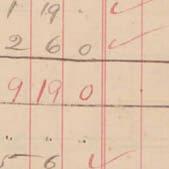 1 19 . ✓
2 6 0 ✓
9 19 0
" "
5 6 1 ✓